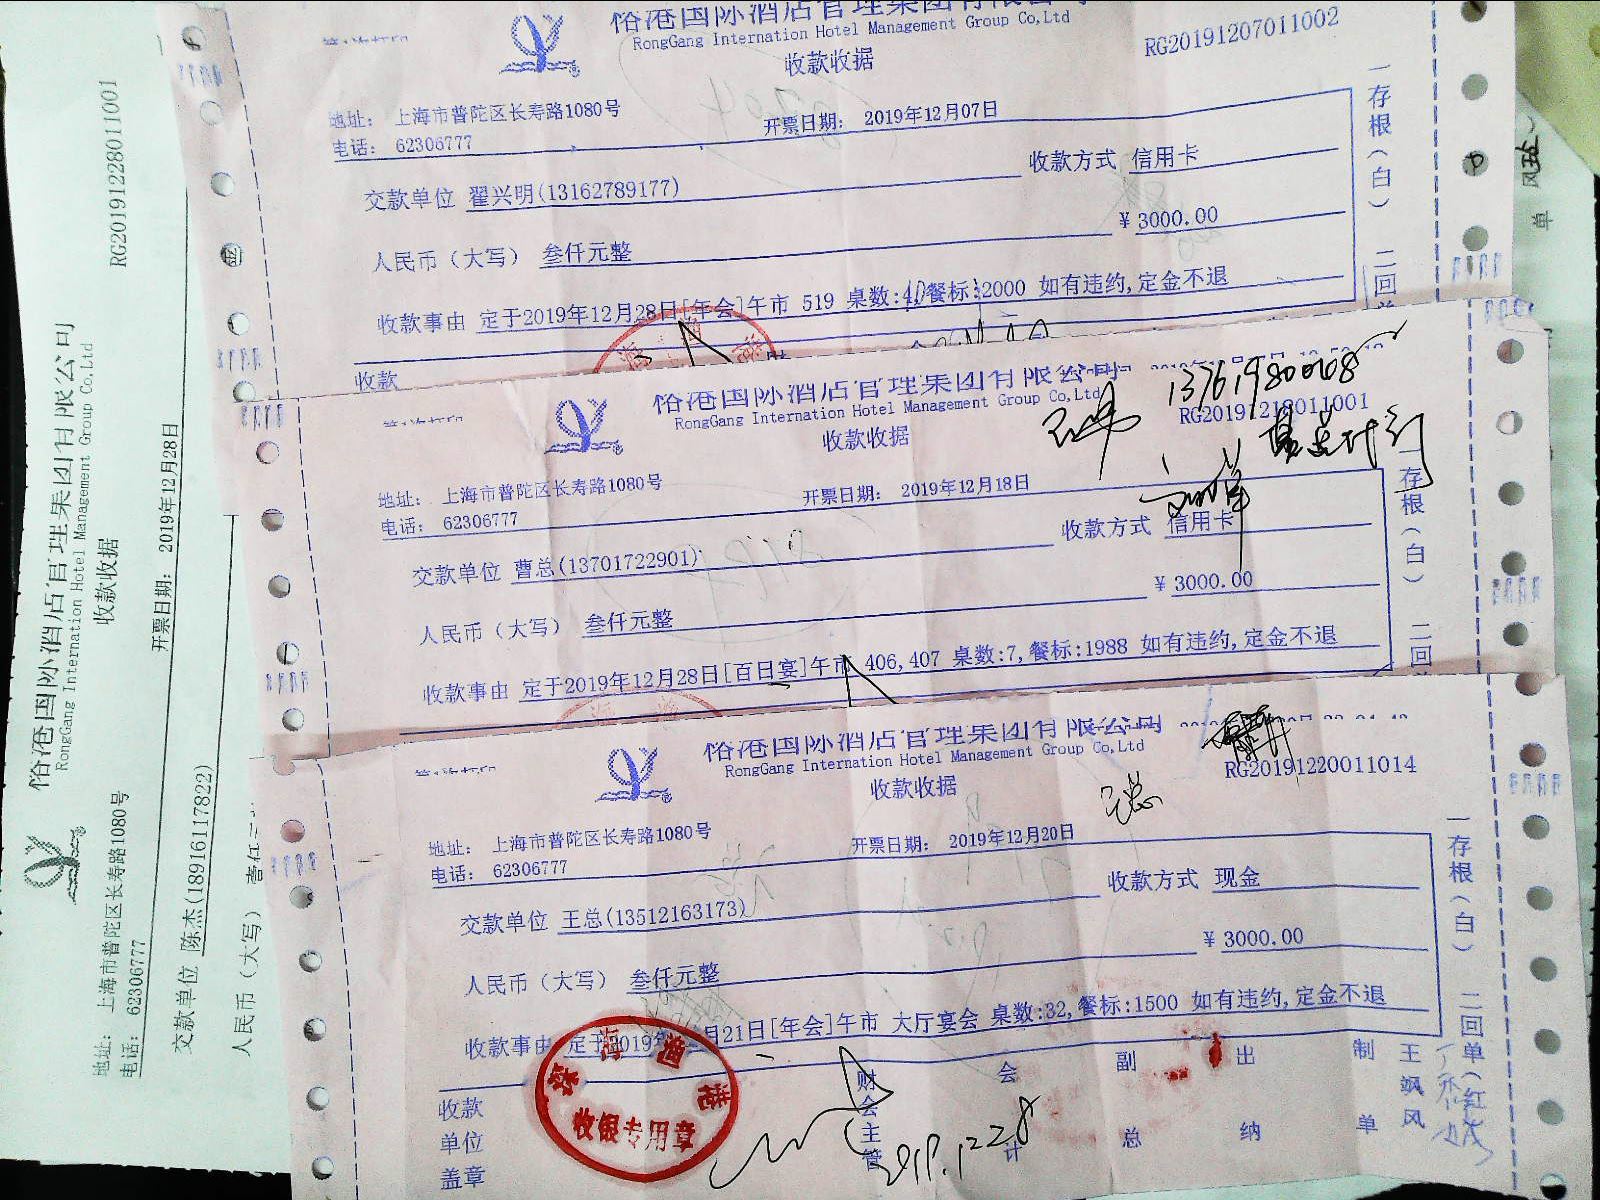 RongGang Internation Hotel Management Group Co,Ltd
RG20191207011002
收款收据
地址： 上海市普陀区长寿路1080号
开票日期： 2019年12月07日
电话： 62306777
收款方式 信用卡
交款单位 翟兴明(13162789177)
¥ 3000.00
人民币（大写） 叁仟元整
收款事由 定于2019年12月28日[年会]午市 519 桌数: 餐标:2000 如有违约,定金不退
收款
一存根（白） 二回
裕港国际酒店管理集团有限公司
RongGang Internation Hotel Management Group Co,Ltd
13761980068
RG20191218011001
收款收据
地址： 上海市普陀区长寿路1080号
开票日期： 2019年12月18日
电话： 62306777
收款方式 信用卡
交款单位 曹总(13701722901)
¥ 3000.00
人民币（大写） 叁仟元整
收款事由 定于2019年12月28日[百日宴]午市 406,407 桌数:7,餐标:1988 如有违约,定金不退
一存根（白） 二回
裕港国际酒店管理集团有限公司
RongGang Internation Hotel Management Group Co,Ltd
RG20191220011014
收款收据
王总
地址： 上海市普陀区长寿路1080号
开票日期： 2019年12月20日
电话： 62306777
收款方式 现金
交款单位 王总(13512163173)
¥ 3000.00
人民币（大写） 叁仟元整
收款事由 定于2019年 月21日[年会]午市 大厅宴会 桌数:32,餐标:1500 如有违约,定金不退
一存根（白） 二回单（红）
收款单位盖章
财会主管
会计
副总
出纳
制单
王飒风
收银专用章
2019.12.28
裕港国际酒店管理集团有限公司
RongGang Internation Hotel Management Group Co,Ltd
RG20191228011001
收款收据
地址： 上海市普陀区长寿路1080号
开票日期： 2019年12月28日
电话： 62306777
交款单位 陈杰(18916117822)
人民币（大写） 壹仟
单
风